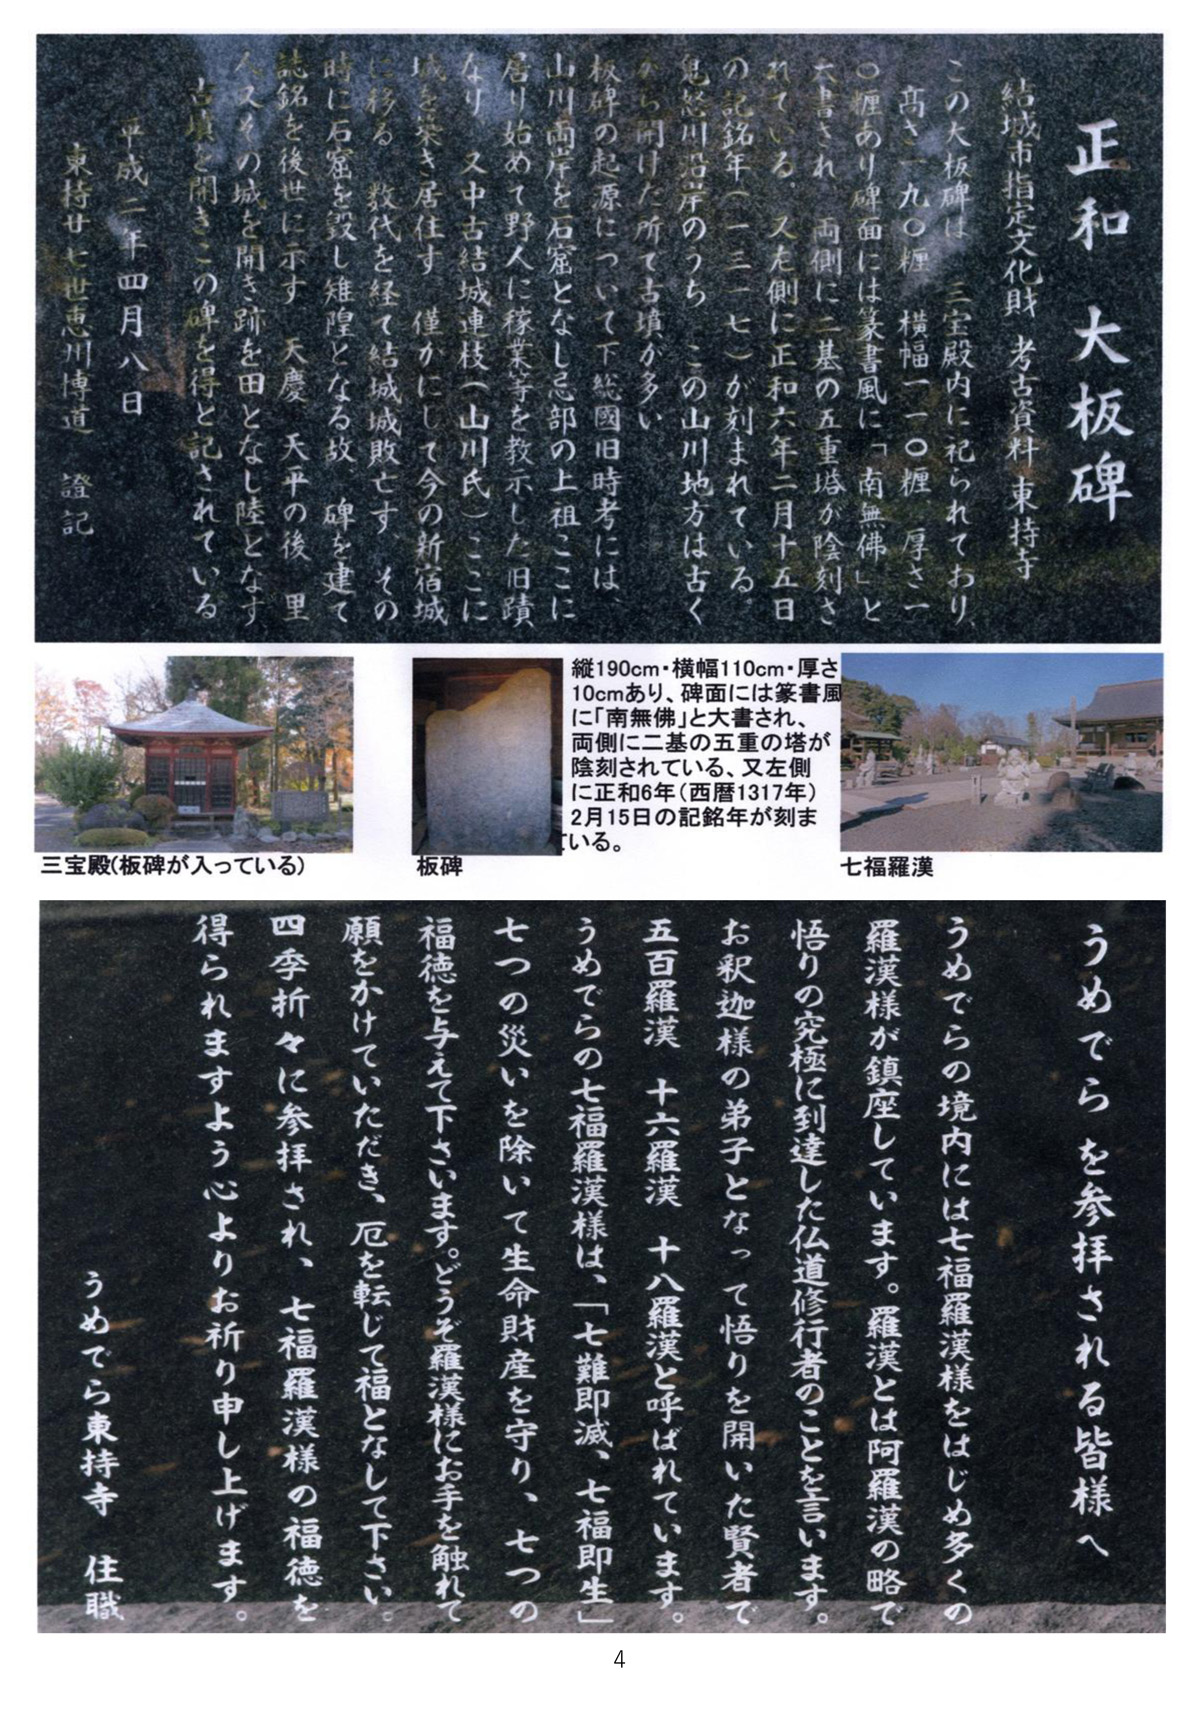 正和 大板碑
結城市指定文化財 考古資料 東持寺
この大板碑は 三宝殿内に祀られており、
高さ一九〇糎 横幅一一〇糎 厚さ一
〇糎あり碑面には篆書風に「南無佛」と
大書され 両側に二基の五重塔が陰刻さ
れている。又左側に正和六年二月十五日
の記銘年(一三一七)が刻まれている。
鬼怒川沿岸のうち この山川地方は古く
から開けた所で古墳が多い
板碑の起源について下総國旧時考には、
山川両岸を石窟となし忌部の上祖ここに
居り始めて野人に稼業等を教示した旧蹟
なり 又中古結城連枝(山川氏)ここに
城を築き居住す 僅かにして今の新宿城
に移る 数代を経て結城城敗亡す その
時に石窟を毀し雉隍となる故、碑を建て
誌銘を後世に示す 天慶 天平の後 里
人又その城を開き跡を田となし陸となす
古墳と開きこの碑を得と記されている
平成二年四月八日
東持廿七世恵川博道 證記
縦190cm・横幅110cm・厚さ
10cmあり、碑面には篆書風
に「南無佛」と大書され、
両側に二基の五重の塔が
陰刻されている、又左側
に正和6年(西暦1317年)
2月15日の記銘年が刻ま
ている。
三宝殿(板碑が入っている)
板碑
七福羅漢
うめでら を参拝される皆様へ
うめでらの境内には七福羅漢様をはじめ多くの
羅漢様が鎮座しています。羅漢とは阿羅漢の略で
悟りの究極に到達した仏道修行者のことを言います。
お釈迦様の弟子となって悟りを開いた賢者で
五百羅漢 十六羅漢 十八羅漢と呼ばれています。
うめでらの七福羅漢様は、「七難即滅、七福即生」
七つの災いを除いて生命財産を守り、七つの
福徳を与えて下さいます。どうぞ羅漢様にお手を触れて
願をかけていただき、厄を転じて福となして下さい。
四季折々に参拝され、七福羅漢様の福徳を
得られますよう心よりお祈り申し上げます。
うめでら東持寺 住職
4